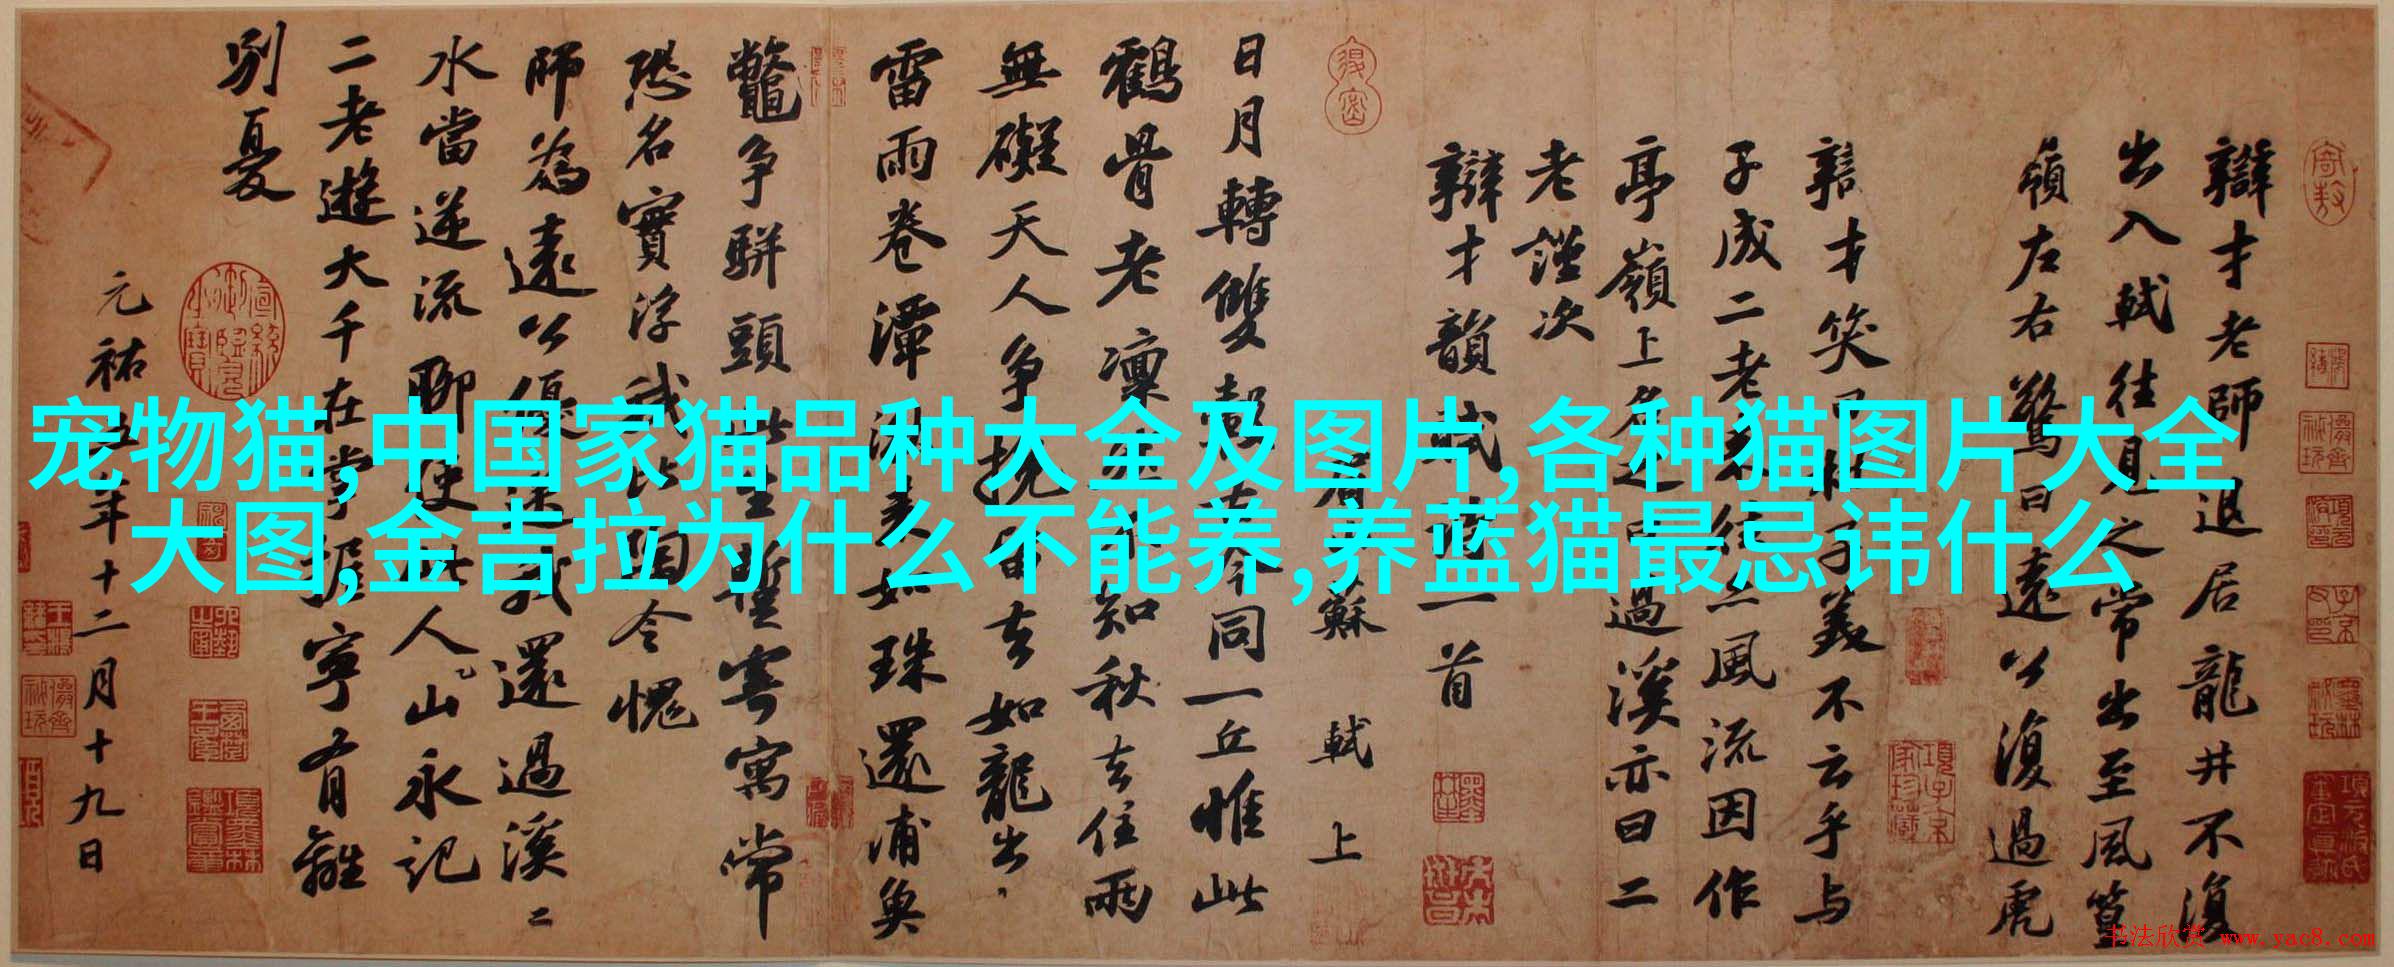 宠物猫,中国家猫品种大全及图片,各种猫图片大全
大图,金吉拉为什么不能养,养蓝猫最忌讳什么
辯才老師退居龍井不復
出入軾往見之常出至風篁
嶺左右驚曰遠公復過虎
辯才笑曰杜子美不云乎与
子成二老來往亦風流因作
亭嶺上名之曰過溪亦曰二
老謹次
辯才韻賦詩一首
眉山蘇軾上
日月轉雙轂古今同一丘惟此
鶴骨老凜然不知秋去住兩
無礙天人爭挽留去如龍出
雷雨卷潭湫來如珠還浦魚
鱉爭駢頭此生暫寄寓常
恐名實浮我比陶令愧
師為遠公優送我還過溪二
水當逆流聊使此人山永記
二老遊大千在掌握寧有離
別憂
元祐五年十二月十九日
书法欣赏 www.yac8.com